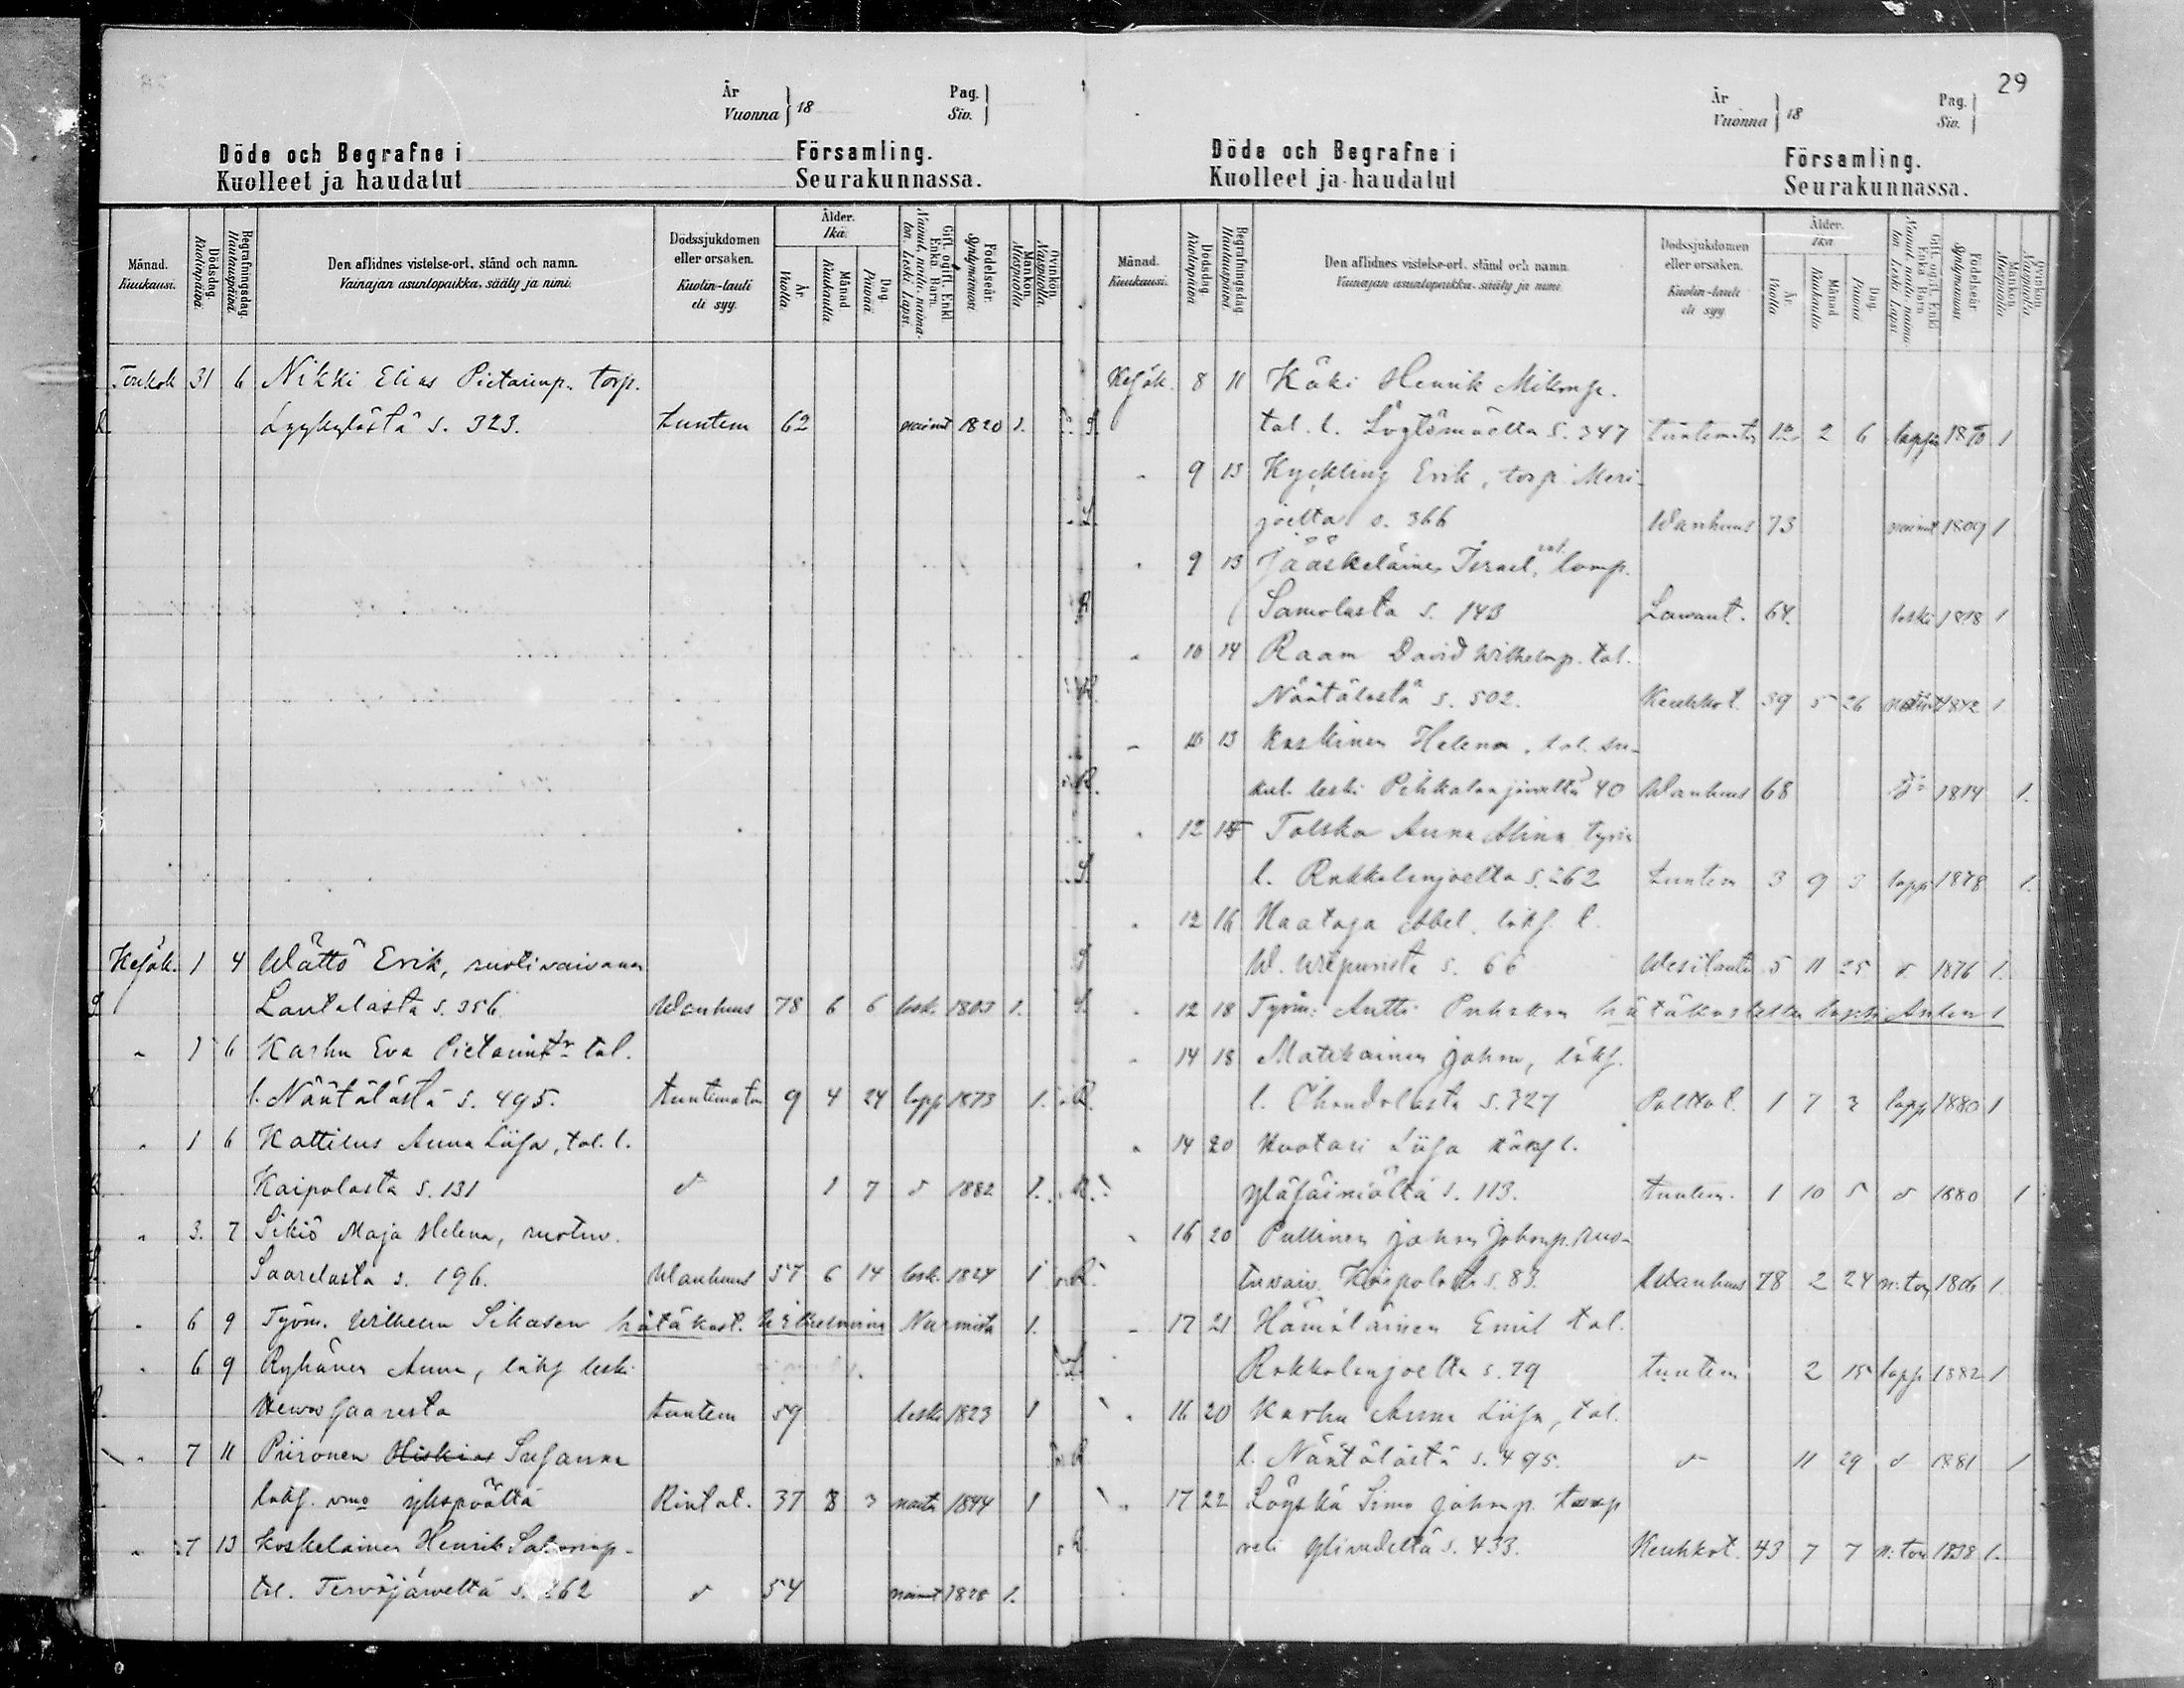 29
År Vuonna } 18 Pag. Siv. }
Döde och Begrafne i Församling.
Kuolleet ja haudatut Seurakunnassa.
Månad. Kuukausi.
Dödsdag. Kuolinpäivä.
Begrafningsdag. Hautauspäivä.
Den aflidnes vistelse-ort, stånd och namn.
Vainajan asuntopaikka, sääty ja nimi.
Dödssjukdomen eller orsaken.
Kuolin-tauti eli syy.
Ålder. Ikä.
År. Vuotta.
Månad. Kuukautta
Dag. Päivää
Gift. ogift. Enkl. Enka. Barn.
Nainut, naitu, naimaton. Leski. Lapsi.
Födelseår. Syntymävuosi.
Mankön. Miespuolia.
Qvinkön. Vaispuolia.
31 6 Nikki Elias Pietarinp. torp.
Lyykylästä s. 323. tuntem 62 nainut 1820 1.
Helják. 1 4 Wättö Erik, ruotivaivanen
Lautalasta s. 356. Wanhuus 78 6 6 lesk. 1803 1.
" 1 6 Karhu Eva Pietarintr tal.
l. Näätälästä s. 495. tuntematon 9 4 24 laps 1873 1.
" 1 6 Kattilus Anna Liisa, tal. l.
Kaipolasta s. 131 d 1 7 d 1882 1.
" 3. 7 Sikiö Maja Helena, ruotiv.
Saarelasta s. 196. Wanhuus 57 6 14 lesk. 1824 1
" 6 9 Työm. Wilhelm Sikasen hätäkast. Wilhelmina Nurmista 1.
" 6 9 Ryhänen Anna, lökf leski
tuntem 59 leski 1823 1
" 7 11 Piironen Hiskias Susanna
lökf. vmo ykspäältä Rintat. 37 8 3 1844 1
" 7 13 Koskelainen Henrik Salomonp.
tal. Tervajärveltä s. 262 d 54 nainut 1828 1.
År Vuonna } 18 Pag. Siv. }
Döde och Begrafne i Församling.
Kuolleet ja haudatut Seurakunnassa.
Månad. Kuukausi.
Dödsdag. Kuolinpäivä
Begrafningsdag. Hautauspäivä.
Den aflidnes vistelse-ort, stånd och namn.
Vainajan asuntopaikka, sääty ja nimi.
Dödssjukdomen eller orsaken.
Kuolin-tauti eli syy
Ålder. Ikä
År. Vuotta
Månad Kuukautta
Dag. Päivää
Gift. ogift. Enkl. Enka. Barn
Nainut, naitu, naimaton. Leski. Lapsi.
Födelseår Syntymävuosi
Mankön Miespuolia
Qvinkön. Vaispuolia.
Helják. 8 11 Käki Henrik Mikonp.
tal. l. s. 347 tuntematon 12 2 6 lapsi 1870 1
" 9 13 Kyckling Erik, torp. Meri-
joelta s. 366 Wanhuus 73 nainut 1809 1
" 9 13 Jääskeläinen Israel, lamp.
Samolasta s. 143 Lavant. 64. leski 1818 1
" 10 14 Raam David Wilhelmp. tal.
Näätälästä s. 502. Keuhkot. 39 5 26 1842 1
" 10 13 Koskinen Helena, tal.
leski Pihkalanjärveltä 40 Wanhuus 68 do 1814 1.
" 12 Tolska Anna Alina
l. Rokkalanjoelta s. 262 tuntem 3 9 3 laps 1878 1.
" 12 16 Haataja Abel lökf. l.
W. Wiipurista s. 66 Wesitauti 5 11 25 d 1876 1.
" 12 18 Työm: Antti Puhakan hätäkastettu lapsi Anton 1
" 14 18 Matikainen Johan, lökf.
l. s. 327 Polttot. 1 7 3 laps 1880 1
" 14 20 Kuotari Liisa l.
s. 113. tuntem. 1 10 5 d 1880 1
" 16 20 Pullinen Johan Johanp. ruo-
tivaiv. Kaipolasta s. 83. Wanhuus 78 2 24 n:ton 1806 1.
" 17 21 Hämäläinen Emil tal.
Rokkalanjoelta s. 79 tuntem 2 15 laps 1882 1
" 16 20 Karhu Anna Liisa, tal.
l. Näätälästä s. 495. d 11 29 d 1881 1
" 17 22 Löyskä Simo Johanp.
veli s. 433. Keuhkot. 43 7 7 n:ton 1838 1.